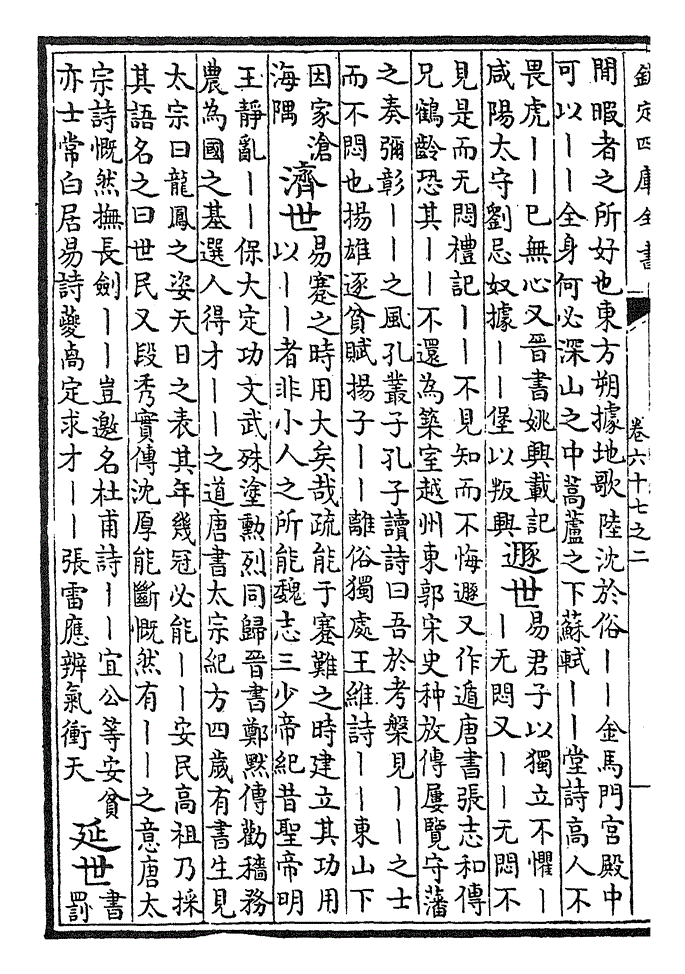 欽定四庫全書
卷六十七之二
閒暇者之所好也東方朔據地歌陸沈於俗――金馬門宮殿中
可以――全身何必深山之中蒿蘆之下蘇軾――堂詩高人不
畏虎――已無心又晉書姚興載記
咸陽太守劉忌奴據――堡以叛興
遯世
易君子以獨立不懼―
―无悶又――无悶不
見是而无悶禮記――不見知而不悔遯又作遁唐書張志和傳
兄鶴齡恐其――不還為築室越州東郭宋史种放傳屢覽守藩
之奏彌彰――之風孔叢子孔子讀詩曰吾於考槃見――之士
而不悶也揚雄逐貧賦揚子――離俗獨處王維詩――東山下
因家滄
海隅
濟世
易蹇之時用大矣哉疏能于蹇難之時建立其功用
以――者非小人之所能魏志三少帝紀昔聖帝明
王靜亂――保大定功文武殊塗勲烈同歸晉書鄭黙傳勸穡務
農為國之基選人得才――之道唐書太宗紀方四歲有書生見
太宗曰龍鳳之姿天日之表其年幾冠必能――安民高祖乃採
其語名之曰世民又段秀實傳沈厚能斷慨然有――之意唐太
宗詩慨然撫長劍――豈邀名杜甫詩――宜公等安貧
亦士常白居易詩夔卨定求才――張雷應辨氣衝天
延世
書
罰